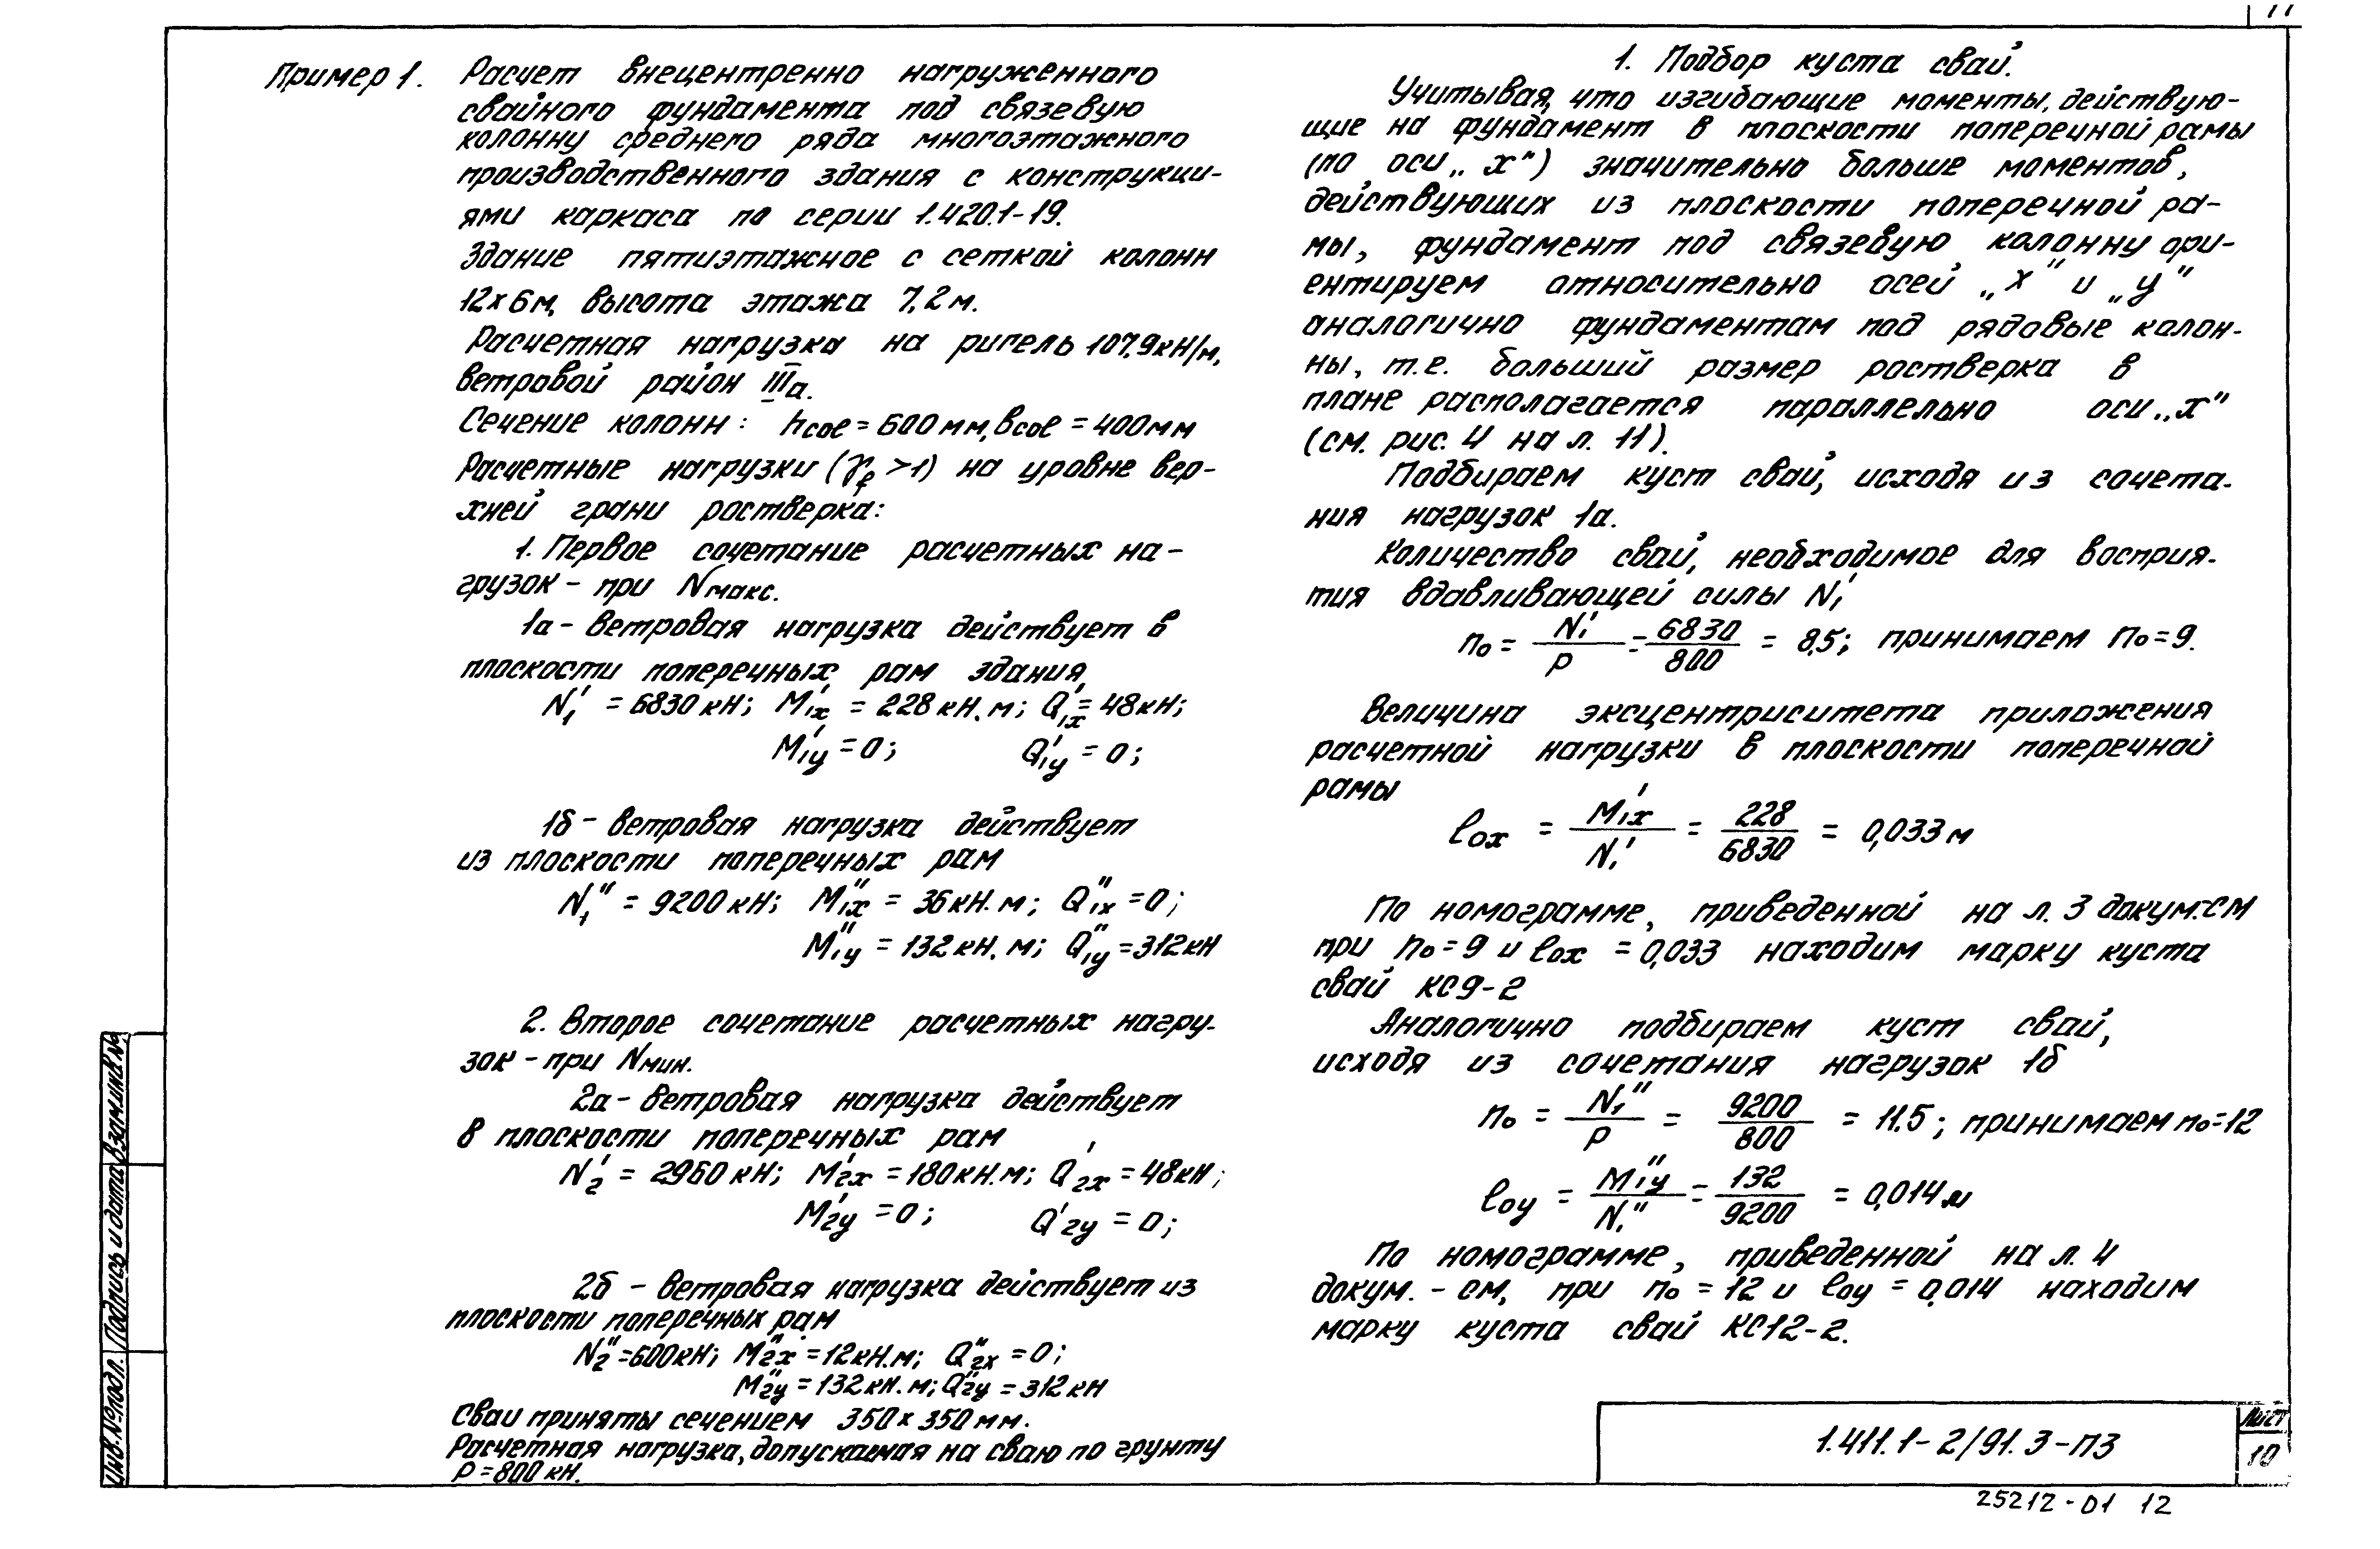 11
Пример 1. Расчет внецентренно нагруженного
свайного фундамента под связевую
колонну среднего ряда многоэтажного
производственного здания с конструкци-
ями каркаса по серии 1.420.1-19.
Здание пятиэтажное с сеткой колонн
12х6м, высота этажа 7,2м.
Расчетная нагрузка на ригель 107,9кН/м,
ветровой район IIIа.
Сечение колонн: hcol = 600мм, bcol = 400мм
Расчетные нагрузки (γf >1) на уровне вер-
хней грани ростверка:
1. Первое сочетание расчетных на-
грузок - при Nмакс.
1а - ветровая нагрузка действует в
плоскости поперечных рам здания
N₁' = 6830кН; M'₁x = 228кН.м; Q'₁x = 48кН;
M'₁y = 0; Q'₁y = 0;
1б - ветровая нагрузка действует
из плоскости поперечных рам
N₁'' = 9200кН; M''₁x = 36кН.м; Q''₁x = 0;
M''₁y = 132кН.м; Q''₁y = 312кН
2. Второе сочетание расчетных нагру-
зок - при Nмин.
2а - Ветровая нагрузка действует
в плоскости поперечных рам
N₂' = 2960кН; M'₂x = 180кН.м; Q'₂x = 48кН;
M'₂y = 0; Q'₂y = 0;
2б - Ветровая нагрузка действует из
плоскости поперечных рам
N₂'' = 600кН; M''₂x = 12кН.м; Q''₂x = 0;
M''₂y = 132кН.м; Q''₂y = 312кН
Сваи приняты сечением 350х350мм.
Расчетная нагрузка, допускаемая на сваю по грунту
P = 800кН.
1. Подбор куста свай.
Учитывая, что изгибающие моменты, действую-
щие на фундамент в плоскости поперечной рамы
(по оси „х") значительно больше моментов,
действующих из плоскости поперечной ра-
мы, фундамент под связевую колонну ори-
ентируем относительно осей „х" и „у"
аналогично фундаментам под рядовые колон-
ны, т.е. больший размер ростверка в
плане располагается параллельно оси „х"
(см. рис. 4 на л. 11).
Подбираем куст свай, исходя из сочета-
ния нагрузок 1а.
Количество свай, необходимое для восприя-
тия вдавливающей силы N₁'
n₀ = N₁'/P = 6830/800 = 8,5; принимаем n₀ = 9.
Величина эксцентриситета приложения
расчетной нагрузки в плоскости поперечной
рамы
ℓox = M'₁x/N₁' = 228/6830 = 0,033м
По номограмме, приведенной на л. 3 докум.-СМ
при n₀ = 9 и ℓox = 0,033 находим марку куста
свай КС9-2
Аналогично подбираем куст свай,
исходя из сочетания нагрузок 1б
n₀ = N₁''/P = 9200/800 = 11.5; принимаем n₀ = 12
ℓoy = M''₁y/N₁'' = 132/9200 = 0,014м
По номограмме, приведенной на л. 4
докум. - СМ, при n₀ = 12 и ℓoy = 0,014 находим
марку куста свай КС12-2.
Инв.№подл. Подпись и дата Взам.инв№
1.411.1-2/91.3-ПЗ
Лист
10
25212-01 12